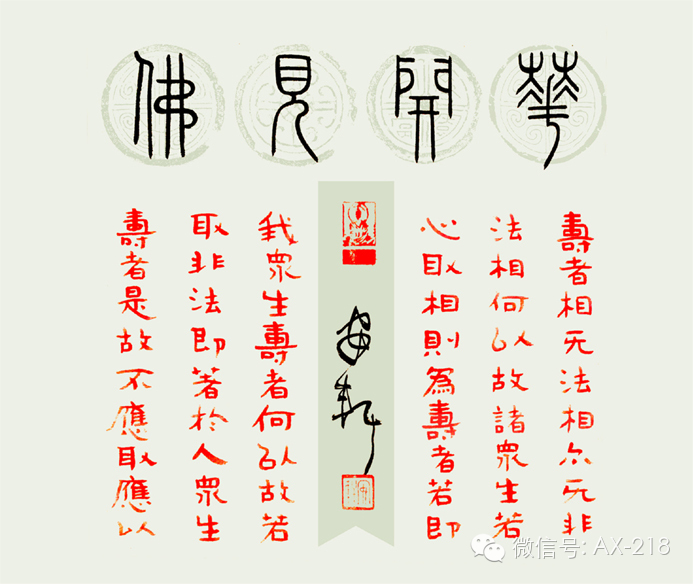 華開見佛
壽者相无法相亦无非
法相何以故諸衆生若
心取相則為壽者若即
我衆生壽者何以故若
取非法即著於人衆生
壽者是故不應取應以
微信号: AX-218